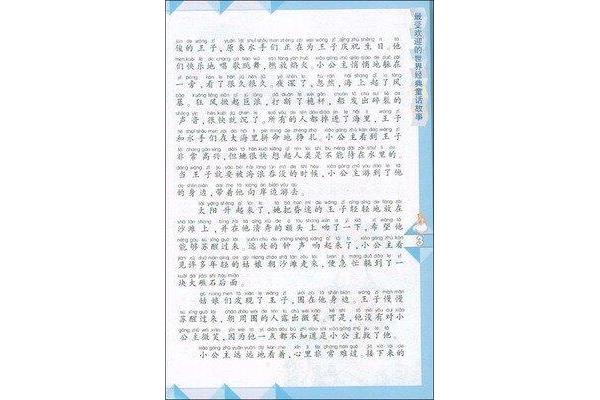 俊的王子,原来水手们正在为王子庆祝生日。他
们快乐地唱歌跳舞,燃放焰火,小公主悄悄地躲在
一旁,看了很久很久。夜深了,忽然,海上起了风
暴。狂风掀起巨浪,打断了桅杆,船发出碎裂的
声音,很快就沉了,所有的人都掉进了海里,王子
和水手们在大海里拼命地挣扎。小公主看到王子
非常高兴,但她很快想起人类是不能待在水里的。
当王子就要被海浪吞没的时候,小公主游到了他
的身边,带着他向岸边游去。
太阳升起来了,她把昏迷的王子轻轻地放在
沙滩上,并在他清秀的额头上吻了一下,希望他
能够苏醒过来。远处的钟声响起来了,小公主看
见许多年轻的姑娘朝沙滩走来,便急忙躲到了一
块大礁石后面。
姑娘们发现了王子,围在他身边。王子慢慢
苏醒过来,朝周围的人露出微笑。可是,他没有对小
公主微笑,因为他一点都不知道是小公主救了他。
小公主远远地看着,心里非常难过。接下来的
最受欢迎的世界经典童话故事
3